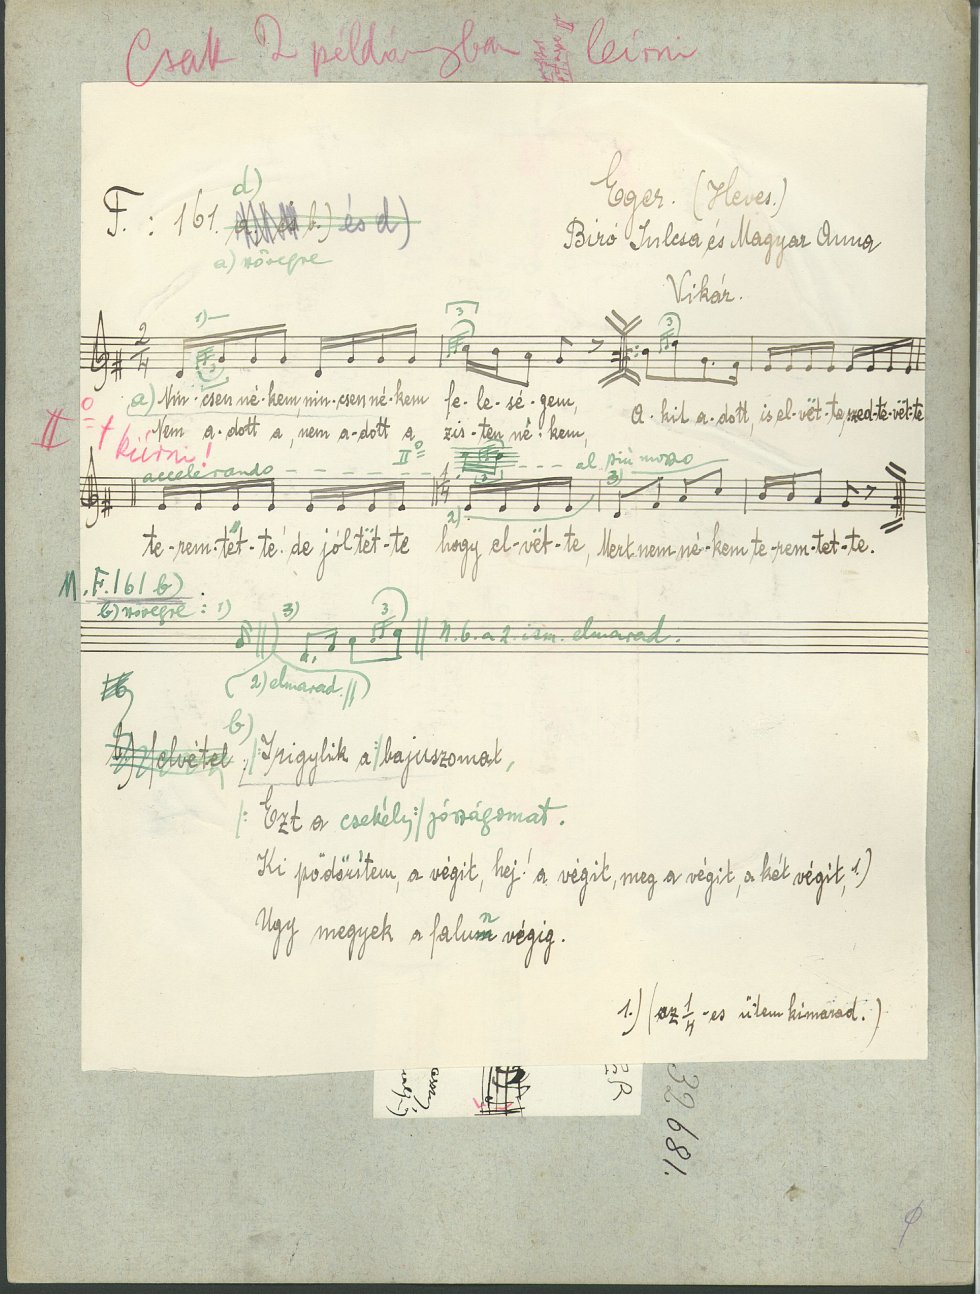 Csak 2 példányban leirni
d)
F.: 161. b.) és d)
a) szövegre
Eger. (Heves.)
Biró Julcsa és Magyar Anna
Vikár.
1)
3
3
2
4
a) Nin-csen né-kem, nin-csen né-kem fe-le-sé-gem, A-kit a-dott, is el-vët-te, szed-te-vët-te
Nem a-dott a, nem a-dott a zis-ten né-kem,
IIº
kiirni!
accelerando IIº al più mosso
2) 3)
te-rem-tët-te! de jól tët-te hogy el-vët-te, Mert nem né-kem te-rem-tet-te.
M.F. 161 b)
b) szövegre: 1) 3) 3 N.b. a 2. ism. elmarad.
2) elmarad.
b)
b) felvétel: |: Irigylik a :| bajuszomat,
|: Ezt a csekély :| jószágomat.
Ki pödörítem, a végit, hej! a végit, meg a végit, a két végit, 1.)
Ugy megyek a falun végig.
1.) (az 1/4-es ütem kimarad.)
32681.